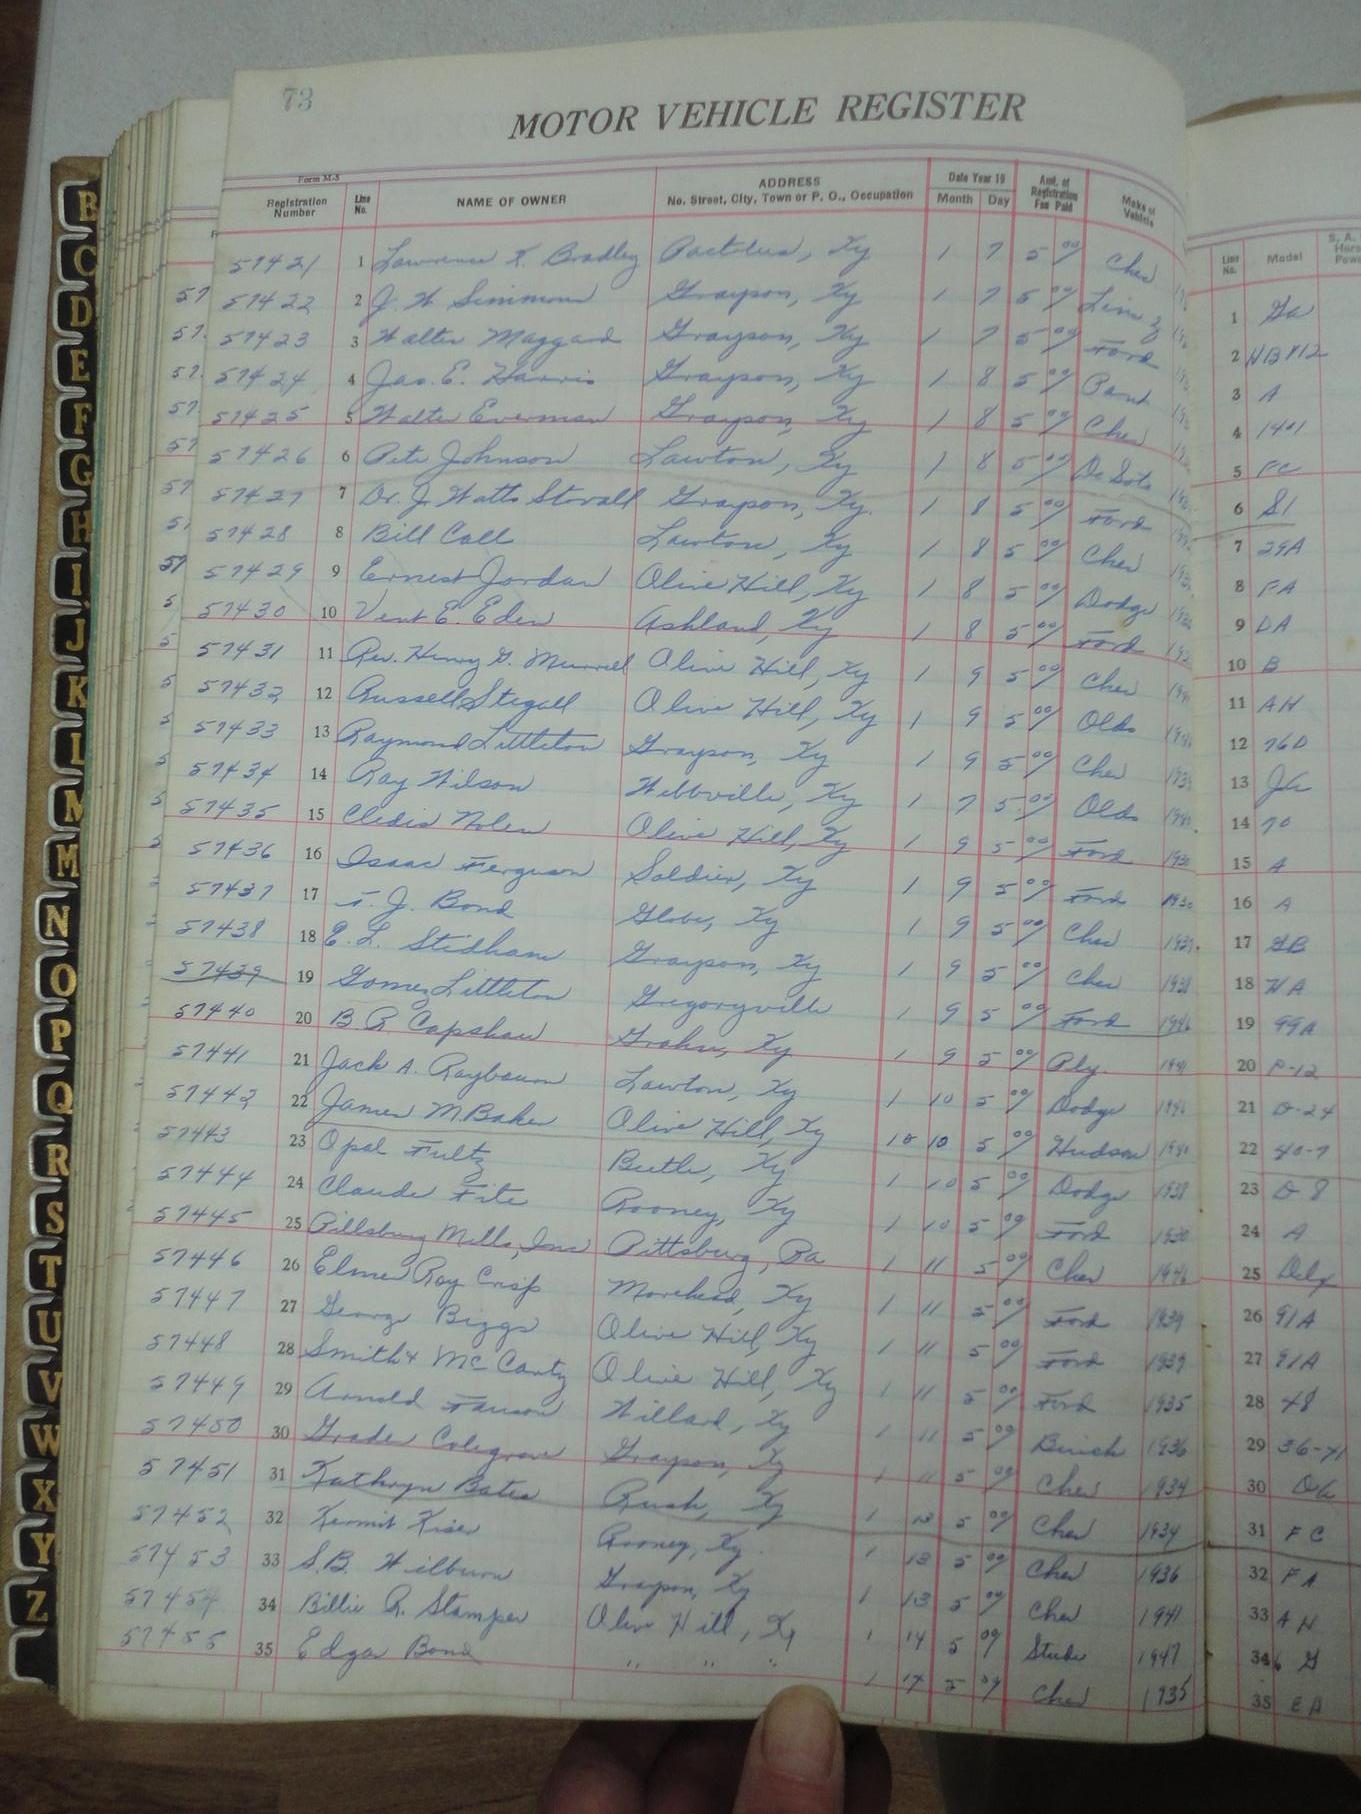 73
MOTOR VEHICLE REGISTER
Form M-5
Registration Number Line No. NAME OF OWNER ADDRESS No. Street, City, Town or P. O., Occupation Date Year 19 Month Day Amt. of Registration Fee Paid Make of Vehicle Line No. Model S. A. Horse Power
57421 1 Lawrence K. Bradley Pactolus, Ky 1 7 5 00 Chev 1 Ga
57422 2 J. W. Simmons Grayson, Ky 1 7 5 00 2
57423 3 Walter Maggard Grayson, Ky 1 7 5 00 Ford 3 A
57424 4 Jas. E. Harris Grayson, Ky 1 8 5 00 4 1401
57425 5 Walter Everman Grayson, Ky 1 8 5 00 Chev 5 FC
57426 6 Pete Johnson Lawton, Ky 1 8 5 00 De Soto 6 S1
57427 7 Dr. J. Watts Stovall Grayson, Ky. 1 8 5 00 Ford 7 29A
57428 8 Bill Call Lawton, Ky 1 8 5 00 Chev 8 FA
57429 9 Ernest Jordan Olive Hill, Ky 1 8 5 00 Dodge 9 DA
57430 10 Vent E. Eden Ashland, Ky 1 8 5 00 Ford 10 B
57431 11 Rev. Henry G. Murrell Olive Hill, Ky 1 9 5 00 Chev 11 AH
57432 12 Russell Stegall Olive Hill, Ky 1 9 5 00 Olds 12 76D
57433 13 Raymond Littleton Grayson, Ky 1 9 5 00 Chev 13 JA
57434 14 Ray Wilson Webbville, Ky 1 7 5 00 Olds 1940 14 70
57435 15 Cledis Nolen Olive Hill, Ky 1 9 5 00 Ford 1930 15 A
57436 16 Isaac Ferguson Soldier, Ky 1 9 5 00 Ford 1930 16 A
57437 17 T. J. Bond Globe, Ky 1 9 5 00 Chev 1937 17 GB
57438 18 E. L. Stidham Grayson, Ky 1 9 5 00 Chev 1938 18 HA
57439 19 Gomez Littleton Gregoryville 1 9 5 00 Ford 1946 19 99A
57440 20 B. R Capshaw Grahn, Ky 1 9 5 00 Ply. 1941 20 P-12
57441 21 Jack A. Raybourn Lawton, Ky 1 10 5 00 Dodge 1946 21 D-24
57442 22 James M. Baker Olive Hill, Ky 10 10 5 00 Hudson 1940 22 40-7
57443 23 Opal Fultz Ky 1 10 5 00 Dodge 1938 23 D 8
57444 24 Claude Fite Rooney, Ky 1 10 5 00 Ford 1930 24 A
57445 25 Pillsbury Mills, Inc Pittsburg, Pa 1 11 5 00 Chev 1946 25 Delx
57446 26 Elmer Roy Crisp Morehead, Ky 1 11 5 00 Ford 1939 26 91A
57447 27 George Biggs Olive Hill, Ky 1 11 5 00 Ford 1939 27 91A
57448 28 Smith & McCarty Olive Hill, Ky 1 11 5 00 Ford 1935 28 48
57449 29 Arnold Fannon Willard, Ky 1 11 5 00 Buick 1936 29 36-41
57450 30 Grade Colegrove Grayson, Ky 1 11 5 00 Chev 1934 30 DA
57451 31 Kathryn Bates Rush, Ky 1 13 5 00 Chev 1934 31 FC
57452 32 Kermit Kiser Rooney, Ky. 1 13 5 00 Chev 1936 32 FA
57453 33 S.B. Wilburn Grayson, Ky 1 13 5 00 Chev 1941 33 AH
57454 34 Billie R. Stamper Olive Hill, Ky 1 14 5 00 Stude 1947 34 6 G
57455 35 Edgar Bond " " " 1 14 5 00 Chev 1935 35 EA
B
C
D
E
F
G
H
I
J
K
L
M
M
N
O
P
Q
R
S
T
U
V
W
X
Y
Z